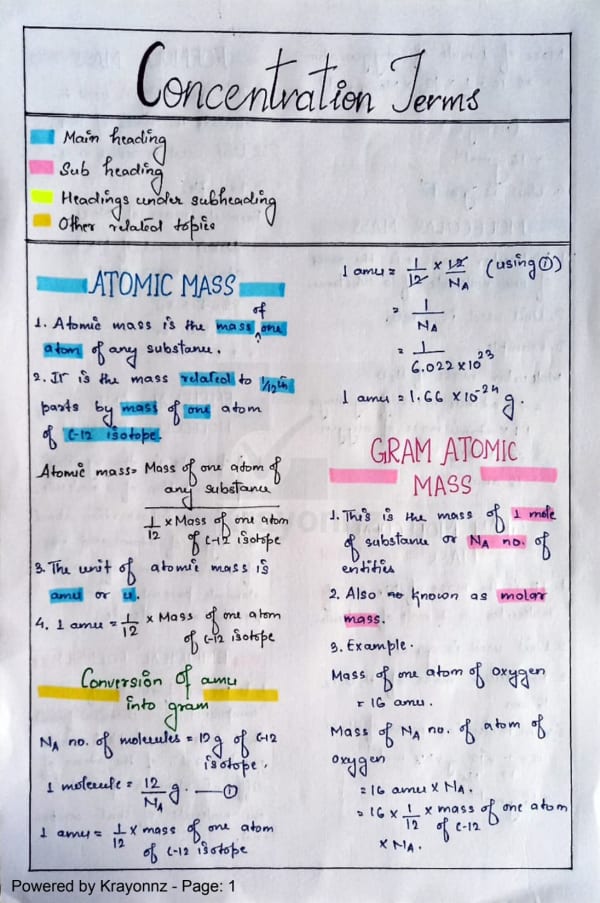 Concentration Terms
Main heading
Sub heading
Headings under subheading
Other related topics
ATOMIC MASS
1. Atomic mass is the mass of one
atom of any substance.
2. It is the mass related to 1/12th
parts by mass of one atom
of C-12 isotope.
Atomic mass = Mass of one atom of
any substance
1/12 × Mass of one atom
of C-12 isotope
3. The unit of atomic mass is
amu or u.
4. 1 amu = 1/12 × Mass of one atom
of C-12 isotope
Conversion of amu
into gram
NA no. of molecules = 12g of C-12
isotope.
1 molecule = 12/NA g. — ①
1 amu = 1/12 × mass of one atom
of C-12 isotope
1 amu = 1/12 × 12/NA (using ①)
= 1/NA
= 1/6.022×10^23
1 amu = 1.66 × 10^-24 g.
GRAM ATOMIC
MASS
1. This is the mass of 1 mole
of substance or NA no. of
entities
2. Also known as molar
mass.
3. Example.
Mass of one atom of oxygen
= 16 amu.
Mass of NA no. of atom of
oxygen
= 16 amu × NA.
= 16 × 1/12 × mass of one atom
of C-12
× NA.
Powered by Krayonnz - Page: 1